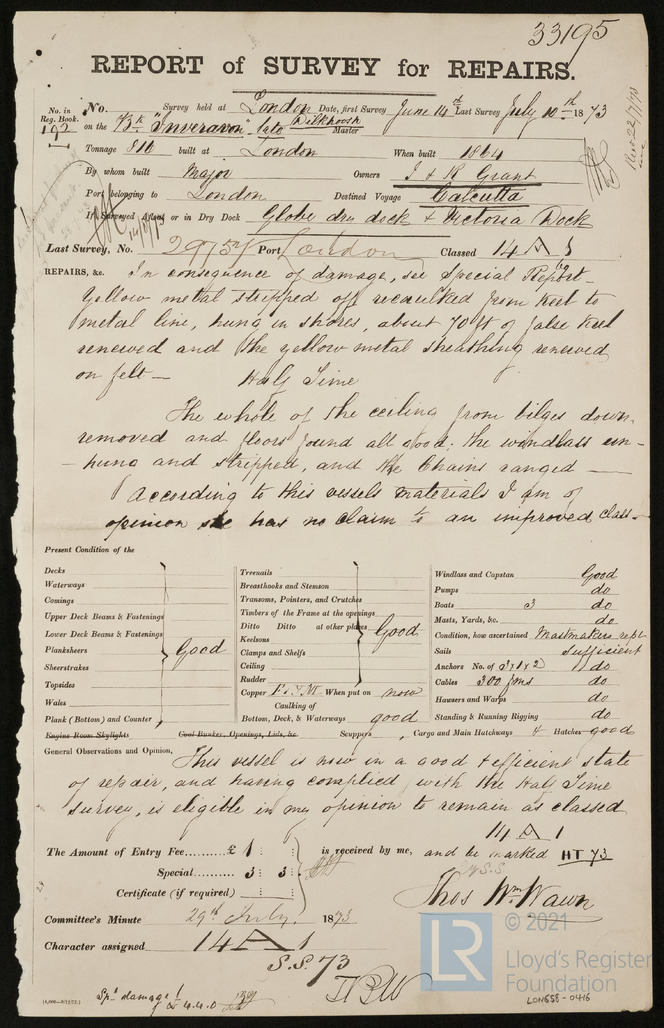 33195
REPORT of SURVEY for REPAIRS.
No. in Reg. Book. 192
No. Survey held at London Date, first Survey June 14th Last Survey July 10th 1873
on the Bk "Inveravon" late Dilkhoosh Master
Tonnage 816 built at London When built 1864
By whom built Major Owners J & R Grant
Port belonging to London Destined Voyage Calcutta
If Surveyed Afloat or in Dry Dock Globe dry dock & Victoria Dock
Last Survey, No. 29757 Port London Classed 14 A 1
REPAIRS, &c. In consequence of damage, see Special Report
Yellow metal stripped off recaulked from keel to
metal line, hung in shores, about 70 ft of false keel
renewed and the yellow metal sheathing renewed
on felt —
Half Time
The whole of the ceiling from bilges down
removed and floors found all good: the windlass un-
hung and stripped, and the Chains ranged —
According to this vessels materials I am of
opinion she has no claim to an improved class —
Present Condition of the
Decks
Waterways
Comings
Upper Deck Beams & Fastenings
Lower Deck Beams & Fastenings
Planksheers
Sheerstrakes
Topsides
Wales
Plank (Bottom) and Counter
Good
Treenails
Breasthooks and Stemson
Transoms, Pointers, and Crutches
Timbers of the Frame at the openings
Ditto Ditto at other places
Keelsons
Clamps and Shelfs
Ceiling
Rudder
Good
Copper F & YM When put on now
Caulking of
Bottom, Deck, & Waterways good
Windlass and Capstan Good
Pumps do
Boats 3 do
Masts, Yards, &c. do
Condition, how ascertained Mastmakers rept
Sails sufficient
Anchors No. of 3 x 1 x 2 do
Cables 300 fms do
Hawsers and Warps do
Standing & Running Rigging do
Engine Room Skylights Coal Bunker, Openings, Lids, &c. Scuppers , Cargo and Main Hatchways 4 Hatches good
General Observations and Opinion, This vessel is now in a good & efficient state
of repair, and having complied with the Half Time
survey, is eligible in my opinion to remain as classed
14 A 1
The Amount of Entry Fee......... £ 1 : : is received by me, and be marked HT 73
Special......... 3 : 3 :
Certificate (if required)
Thos Wm Wawn
Committee's Minute 29th July, 1873
Character assigned 14 A 1
S.S. 73
© 2021
LR
Lloyd's Register
Foundation
LON658-0416
Spl damage
4.4.0